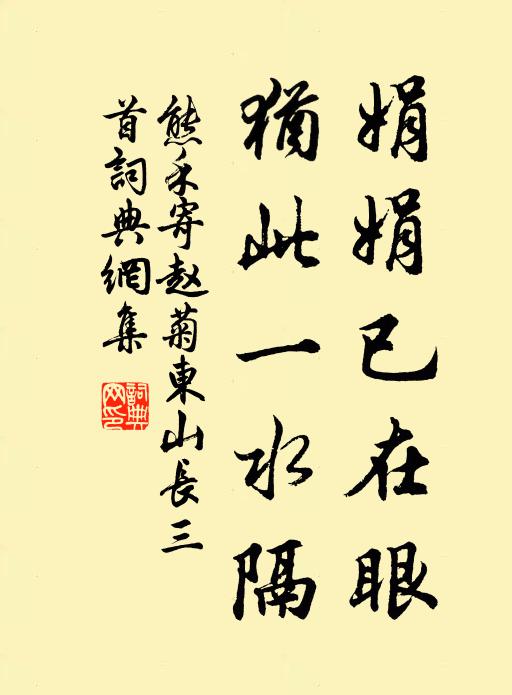 娟娟已在眼
犹此一水隔
熊禾寄赵菊東山長三
首詞典網集
詞典网印